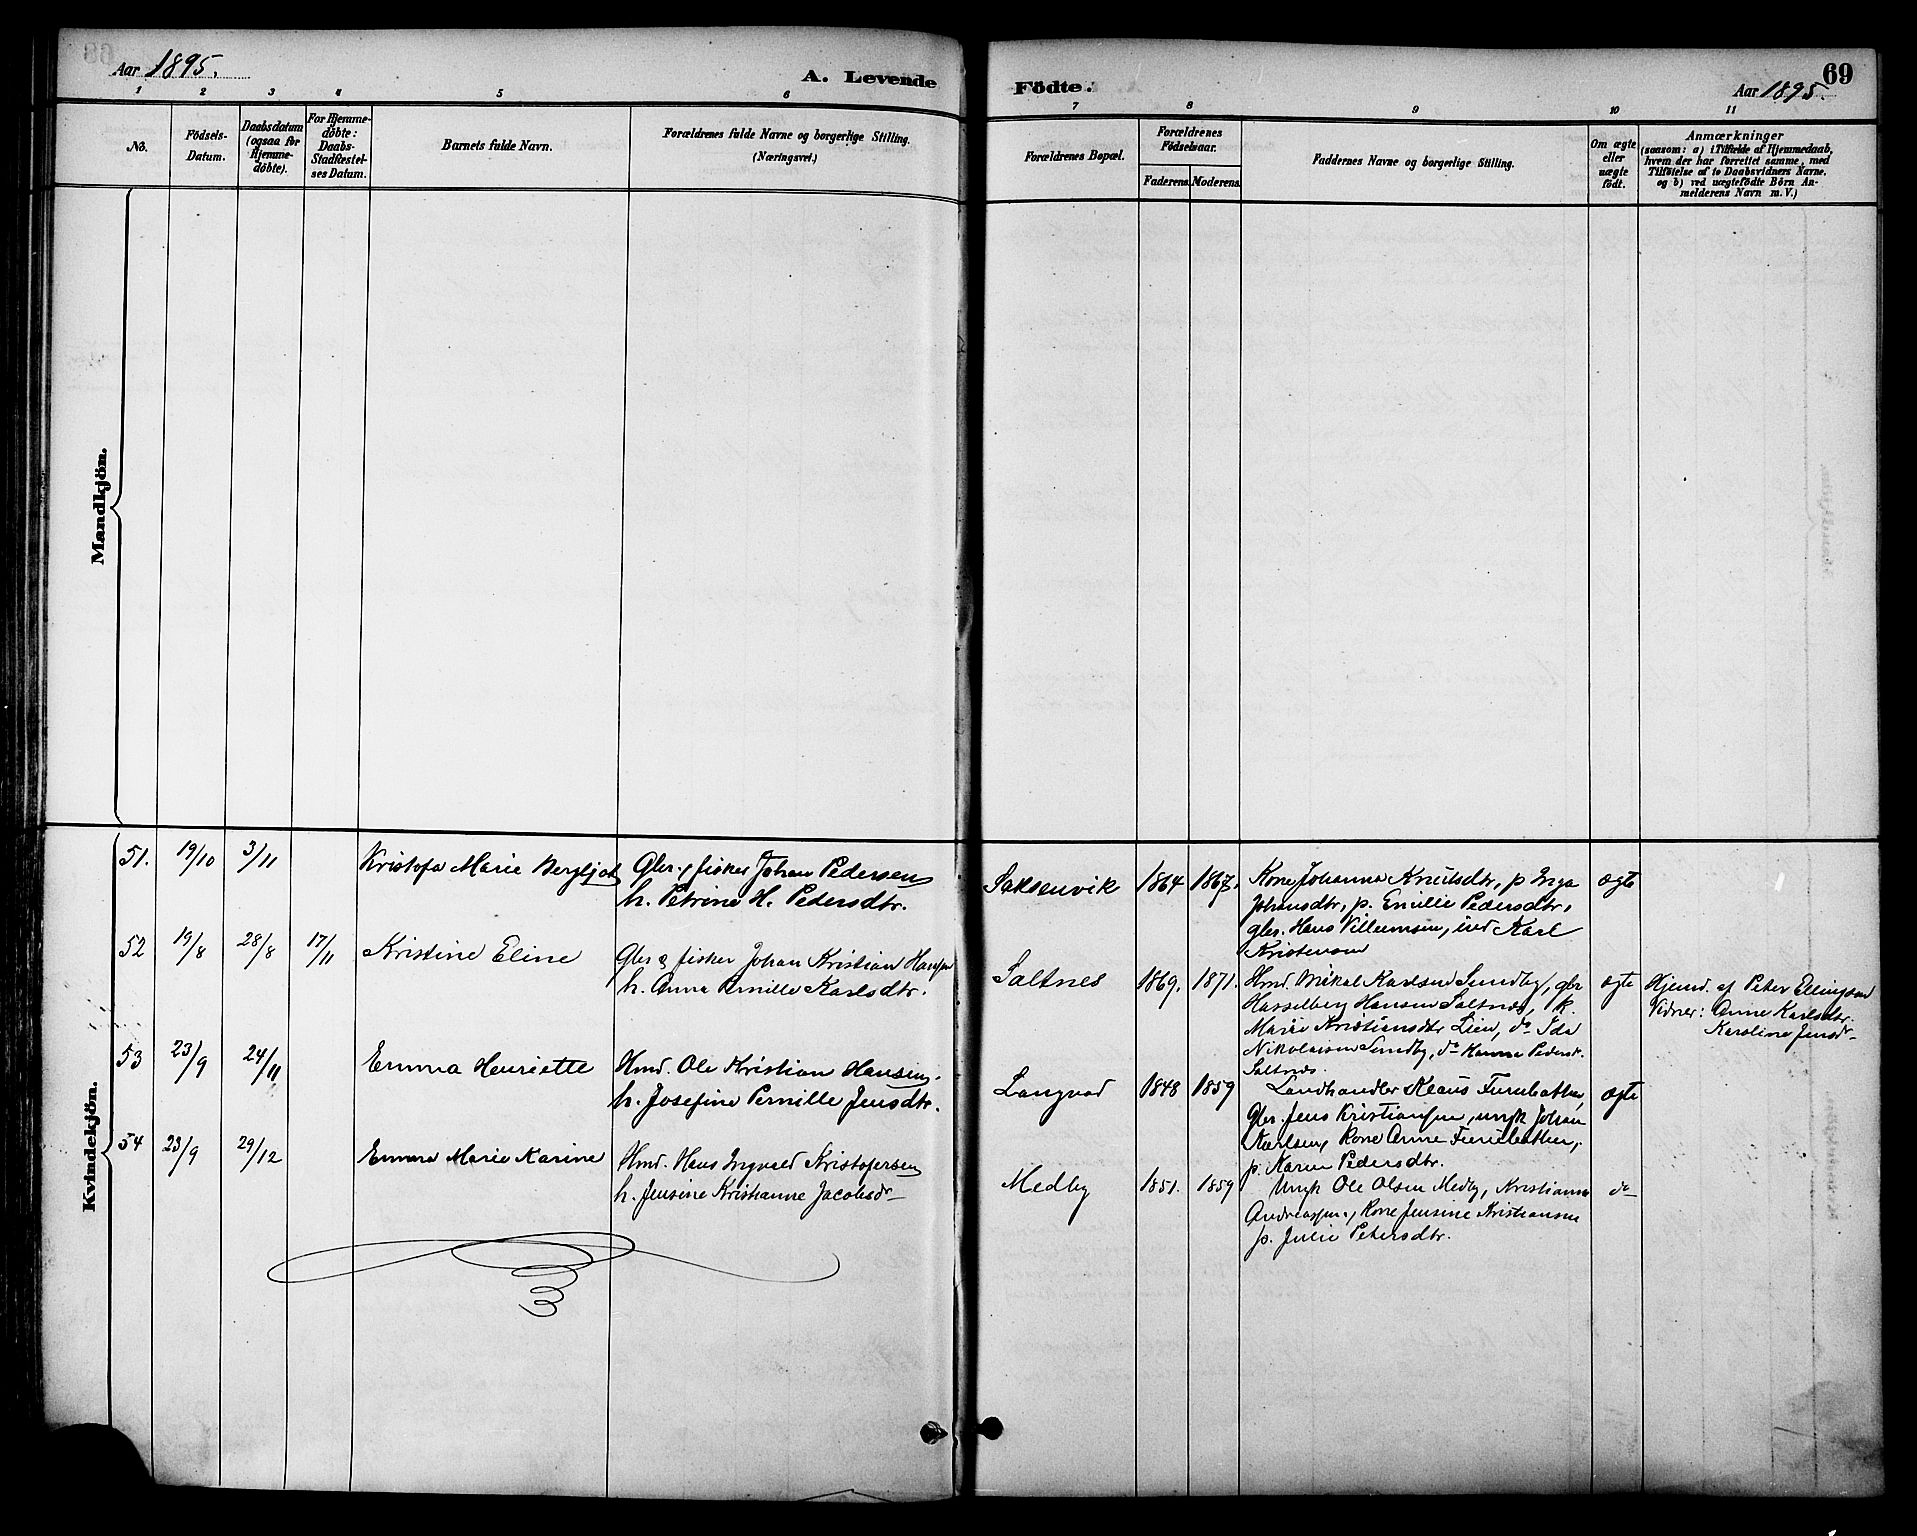 Aar 1895.
A. Levende
Födte.
69
Aar 1895.
1 2 3 4 5 6 7 8 9 10 11
No.
Födsels-
Datum.
Daabsdatum
(ogsaa for
Hjemme-
döbte).
For Hjemme-
döbte:
Daabs-
Stadfæstel-
ses Datum.
Barnets fulde Navn.
Forældrenes fulde Navne og borgerlige Stilling.
(Næringsvei.)
Forældrenes Bopæl.
Forældrenes
Födselsaar.
Faderens. Moderens.
Faddernes Navne og borgerlige Stilling.
Om ægte
eller
uægte
födt.
Anmærkninger
(saasom: a) i Tilfælde af Hjemmedaab,
hvem der har forrettet samme, med
Tilföielse af to Daabsvidners Navne,
og b) ved uægtefödte Börn An-
melderens Navn m. V.)
Mandkjön.
Kvindekjön.
51. 19/10 3/11 Kristofa Marie Bergljot
Gbr. & fisker Johan Pedersen
h. Petrine H. Pedersdtr.
Saksenvik 1864 1867.
Kone Johanna Knutsdtr, p Inga
Johansdtr, p. Emilie Pedersdtr,
gbr. Hans Villumsen, ind Karl
Kristensen
ægte
52 19/8 28/8 17/11 Kristine Eline
Gbr & fisker Johan Kristian Hansen
h. Anna Pernille Karlsdtr.
Saltnes 1869. 1871.
Hmd. Mikal Karlsen Sundby, gbr
Hasselberg Hansen Saltnes, k.
Marie Kristiansdtr Lien, do Ida
Nikolaisen Sundby, do Hanna Pedersd.
Saltnes.
ægte
Hjemd. af Peter Ellingsen
Vidner: Anne Karlsdtr.
Karoline Jensdr
53 23/9 24/11 Emma Henriette
Hmd. Ole Kristian Hansen,
h. Josefine Pernille Jensdtr.
Langvad 1848 1859
Landhandler Klaus
Gbr. Jens Kristiansen, ungk Johan
Karlsen, Kone Anne
p. Karen Pedersdtr.
ægte
54 23/9 29/12 Emma Marie Karine
Hmd. Hans Ingvald Kristofersen
h. Jensine Kristianne Jacobsdr
Medby 1851. 1859
Ungk Ole Olsen Medby, Kristianne
Andreassen, Kone Jensine Kristiansen
p. Julie Petersdtr.
do